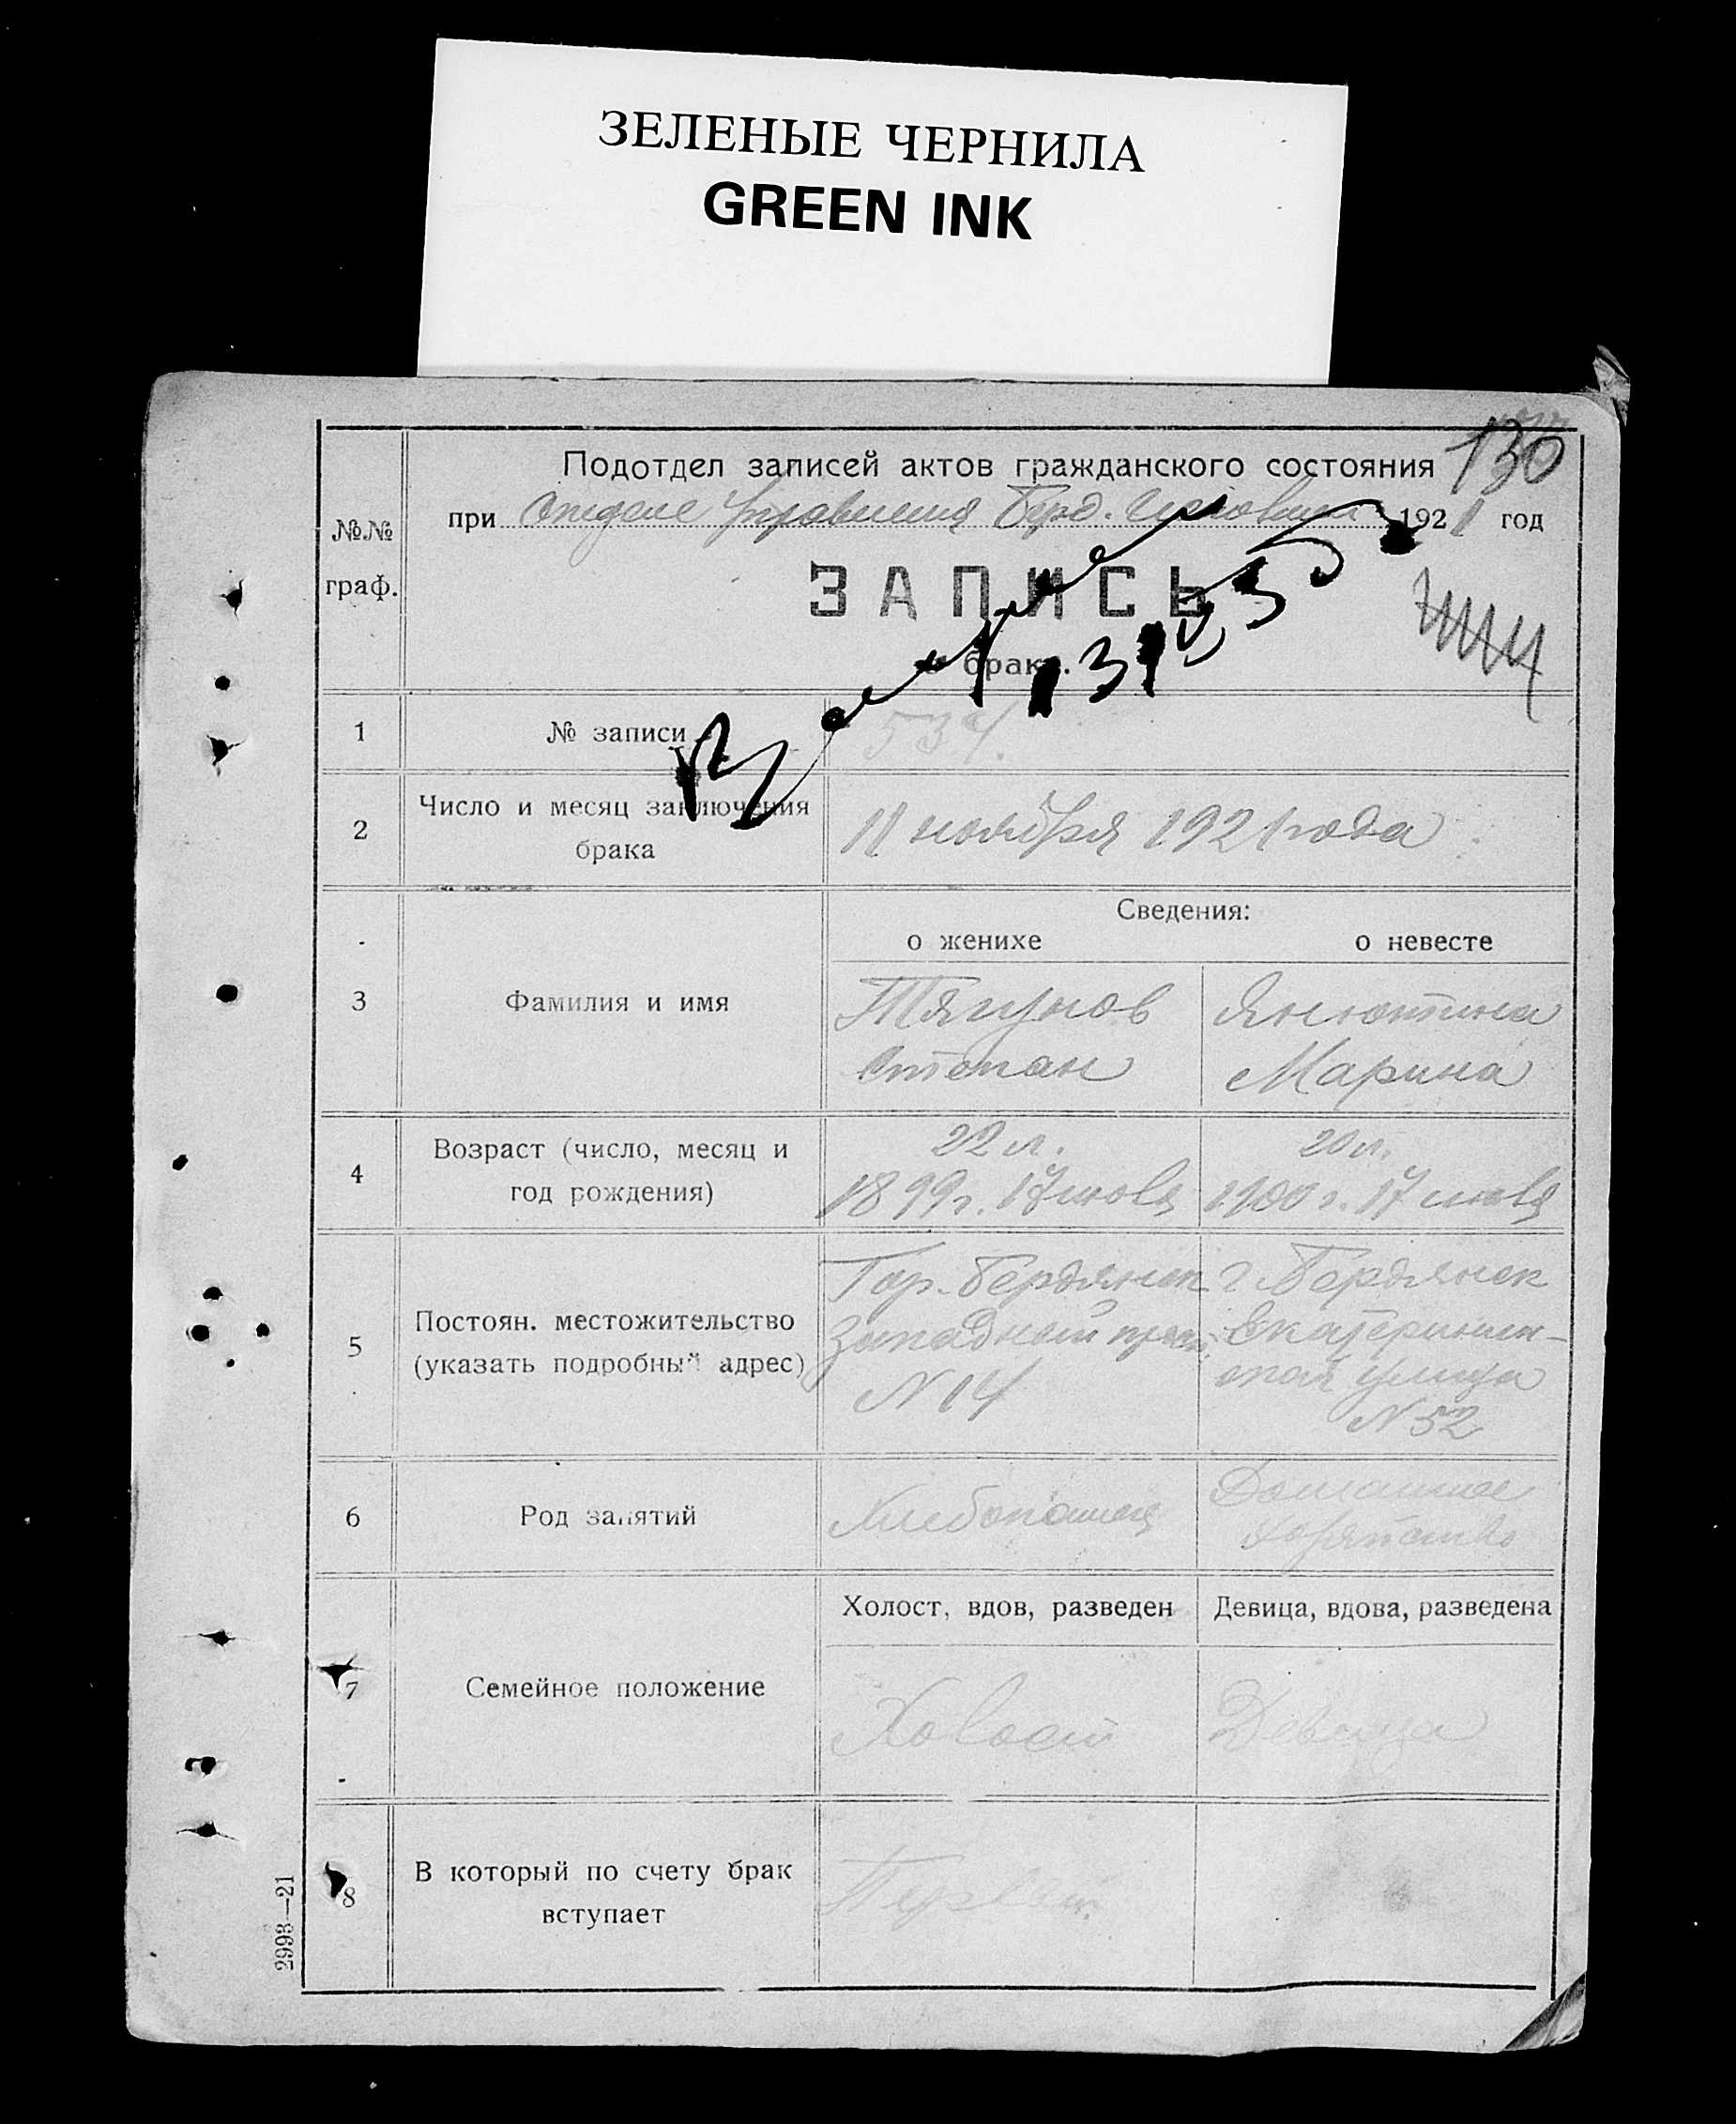 ЗЕЛЕНЫЕ ЧЕРНИЛА
GREEN INK
130
Подотдел записей актов гражданского состояния
при Отделе Управления Берд. 1921 год
№№
граф.
ЗАПИСЬ
о браке.
1 № записи 534.
2 Число и месяц заключения
брака
11 ноября 1921 года
Сведения:
о женихе о невесте
3 Фамилия и имя
Тягунов
Степан
Янютина
Марина
4 Возраст (число, месяц и
год рождения)
22 л.
1899 г. 17 июля
20 л.
1900 г. 17 июля
5 Постоян. местожительство
(указать подробный адрес)
Гор. Бердянск
Западный
N 14
г. Бердянск
Екатеринин-
ская улица
N 52
6 Род занятий
Хлебопашец
Домашнее
хозяйство
Холост, вдов, разведен Девица, вдова, разведена
7 Семейное положение
Холост
Девица
8 В который по счету брак
вступает
Первый
2993—21